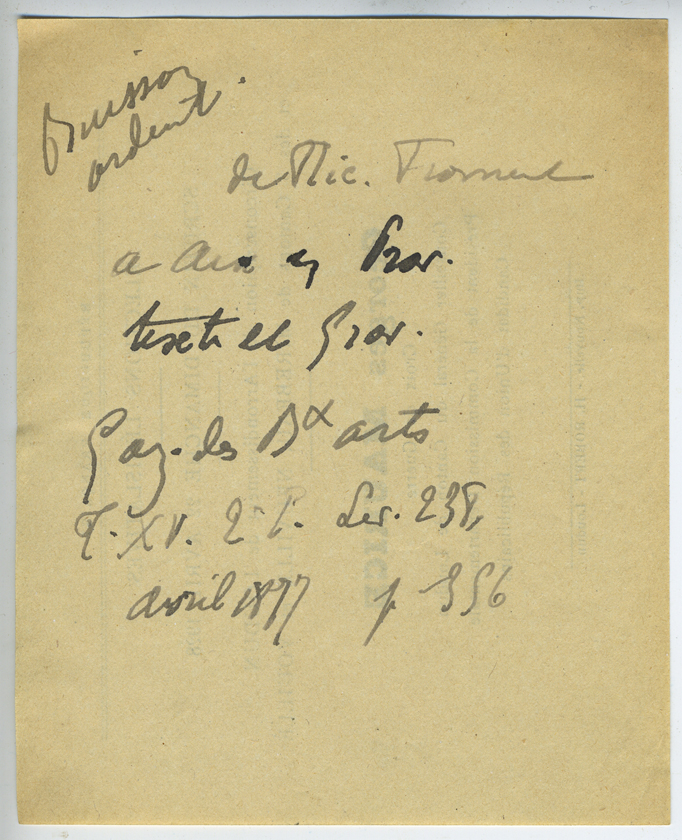 Buisson
ardent.
de Nic. Froment
a Aix en Prov.
texte et Grav.
Gaz. des Bx arts
T. XV. 2e P. Liv. 238,
avril 1877 p 396